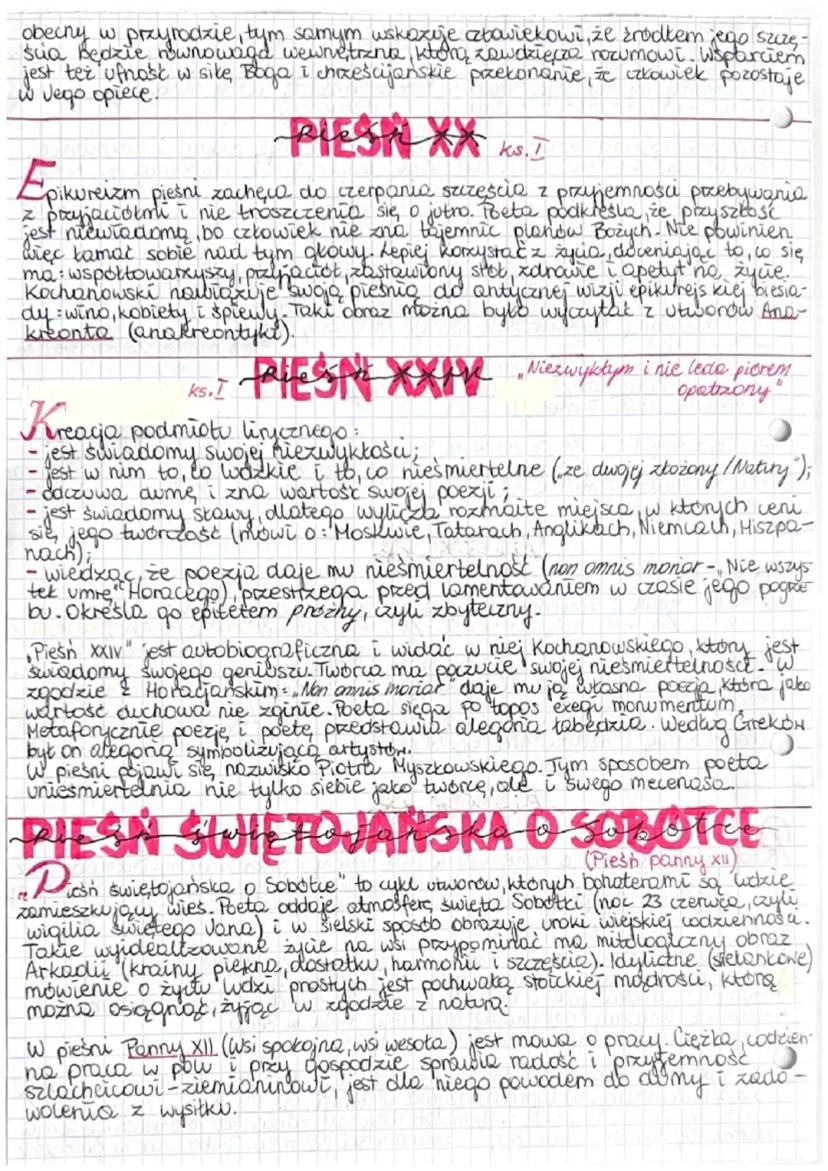 obecny w przyrodzie, tym samym wskazuje człowiekowi, że źródłem jego szczę-
ścia będzie równowaga wewnętrzna, którą zawdzięcza rozumowi. Wsparciem
jest też ufność w siłę Boga i chrześcijańskie przekonanie, że człowiek pozostaje
w Jego opiece.
PIEŚŃ XX ks. I
Epikureizm pieśni zachęca do czerpania szczęścia z przyjemności przebywania
z przyjaciółmi i nie troszczenia się o jutro. Poeta podkreśla, że przyszłość
jest niewiadomą, bo człowiek nie zna tajemnic planów Bożych. Nie powinien
więc łamać sobie nad tym głowy. Lepiej korzystać z życia, doceniając to, co się
ma: współtowarzyszy, przyjaciół, zastawiony stół, zdrowie i apetyt na życie.
Kochanowski nawiązuje swoją pieśnią do antycznej wizji epikurejskiej biesia-
dy: wino, kobiety i śpiewy. Taki obraz można było wyczytać z utworów Ana-
kreonta (anakreontyki).
ks. I PIEŚŃ XXIV „Niezwykłym i nie leda piórem
opatrzony"
Kreacja podmiotu lirycznego:
- jest świadomy swojej niezwykłości;
- jest w nim to, co ludzkie i to, co nieśmiertelne („ze dwojej złożony / Natury");
- odczuwa dumę i zna wartość swojej poezji;
- jest świadomy sławy, dlatego wylicza rozmaite miejsca, w których ceni
się, jego twórczość (mówi o: Moskwie, Tatarach, Anglikach, Niemcach, Hiszpa-
nach);
- wiedząc, że poezja daje mu nieśmiertelność (non omnis moriar - „Nie wszys
tek umrę" Horacego), przestrzega przed lamentowaniem w czasie jego pogrze
bu. Określa go epitetem próżny, czyli zbyteczny.
„Pieśń XXIV" jest autobiograficzna i widać w niej Kochanowskiego, który jest
świadomy swojego geniuszu. Twórca ma poczucie swojej nieśmiertelności. W
zgodzie z Horacjańskim: „Non omnis moriar" daje mu ją własna poezja, która jako
wartość duchowa nie zginie. Poeta sięga po topos exegi monumentum.
Metaforycznie poezję i poetę przedstawia alegoria łabędzia. Według Greków
był on alegorią symbolizującą artystów.
W pieśni pojawi się nazwisko Piotra Myszkowskiego. Tym sposobem poeta
unieśmiertelnia nie tylko siebie jako twórcę, ale i swego mecenasa.
PIEŚŃ ŚWIĘTOJAŃSKA O SOBÓTCE
(Pieśń panny XII)
„Pieśń świętojańska o Sobótce" to cykl utworów, których bohaterami są ludzie
zamieszkujący wieś. Poeta oddaje atmosferę święta Sobótki (noc 23 czerwca, czyli
wigilia świętego Jana) i w sielski sposób obrazuje uroki wiejskiej codzienności.
Takie wyidealizowane życie na wsi przypominać ma mitologiczny obraz
Arkadii (krainy piękna, dostatku, harmonii i szczęścia). Idylliczne (sielankowe)
mówienie o życiu ludzi prostych jest pochwałą stoickiej mądrości, którą
można osiągnąć, żyjąc w zgodzie z naturą.
W pieśni Panny XII (Wsi spokojna, wsi wesoła) jest mowa o pracy. Ciężka, codzien-
na praca w polu i przy gospodzie sprawia radość i przyjemność
szlachcicowi-ziemianinowi, jest dla niego powodem do dumy i zado-
wolenia z wysiłku.